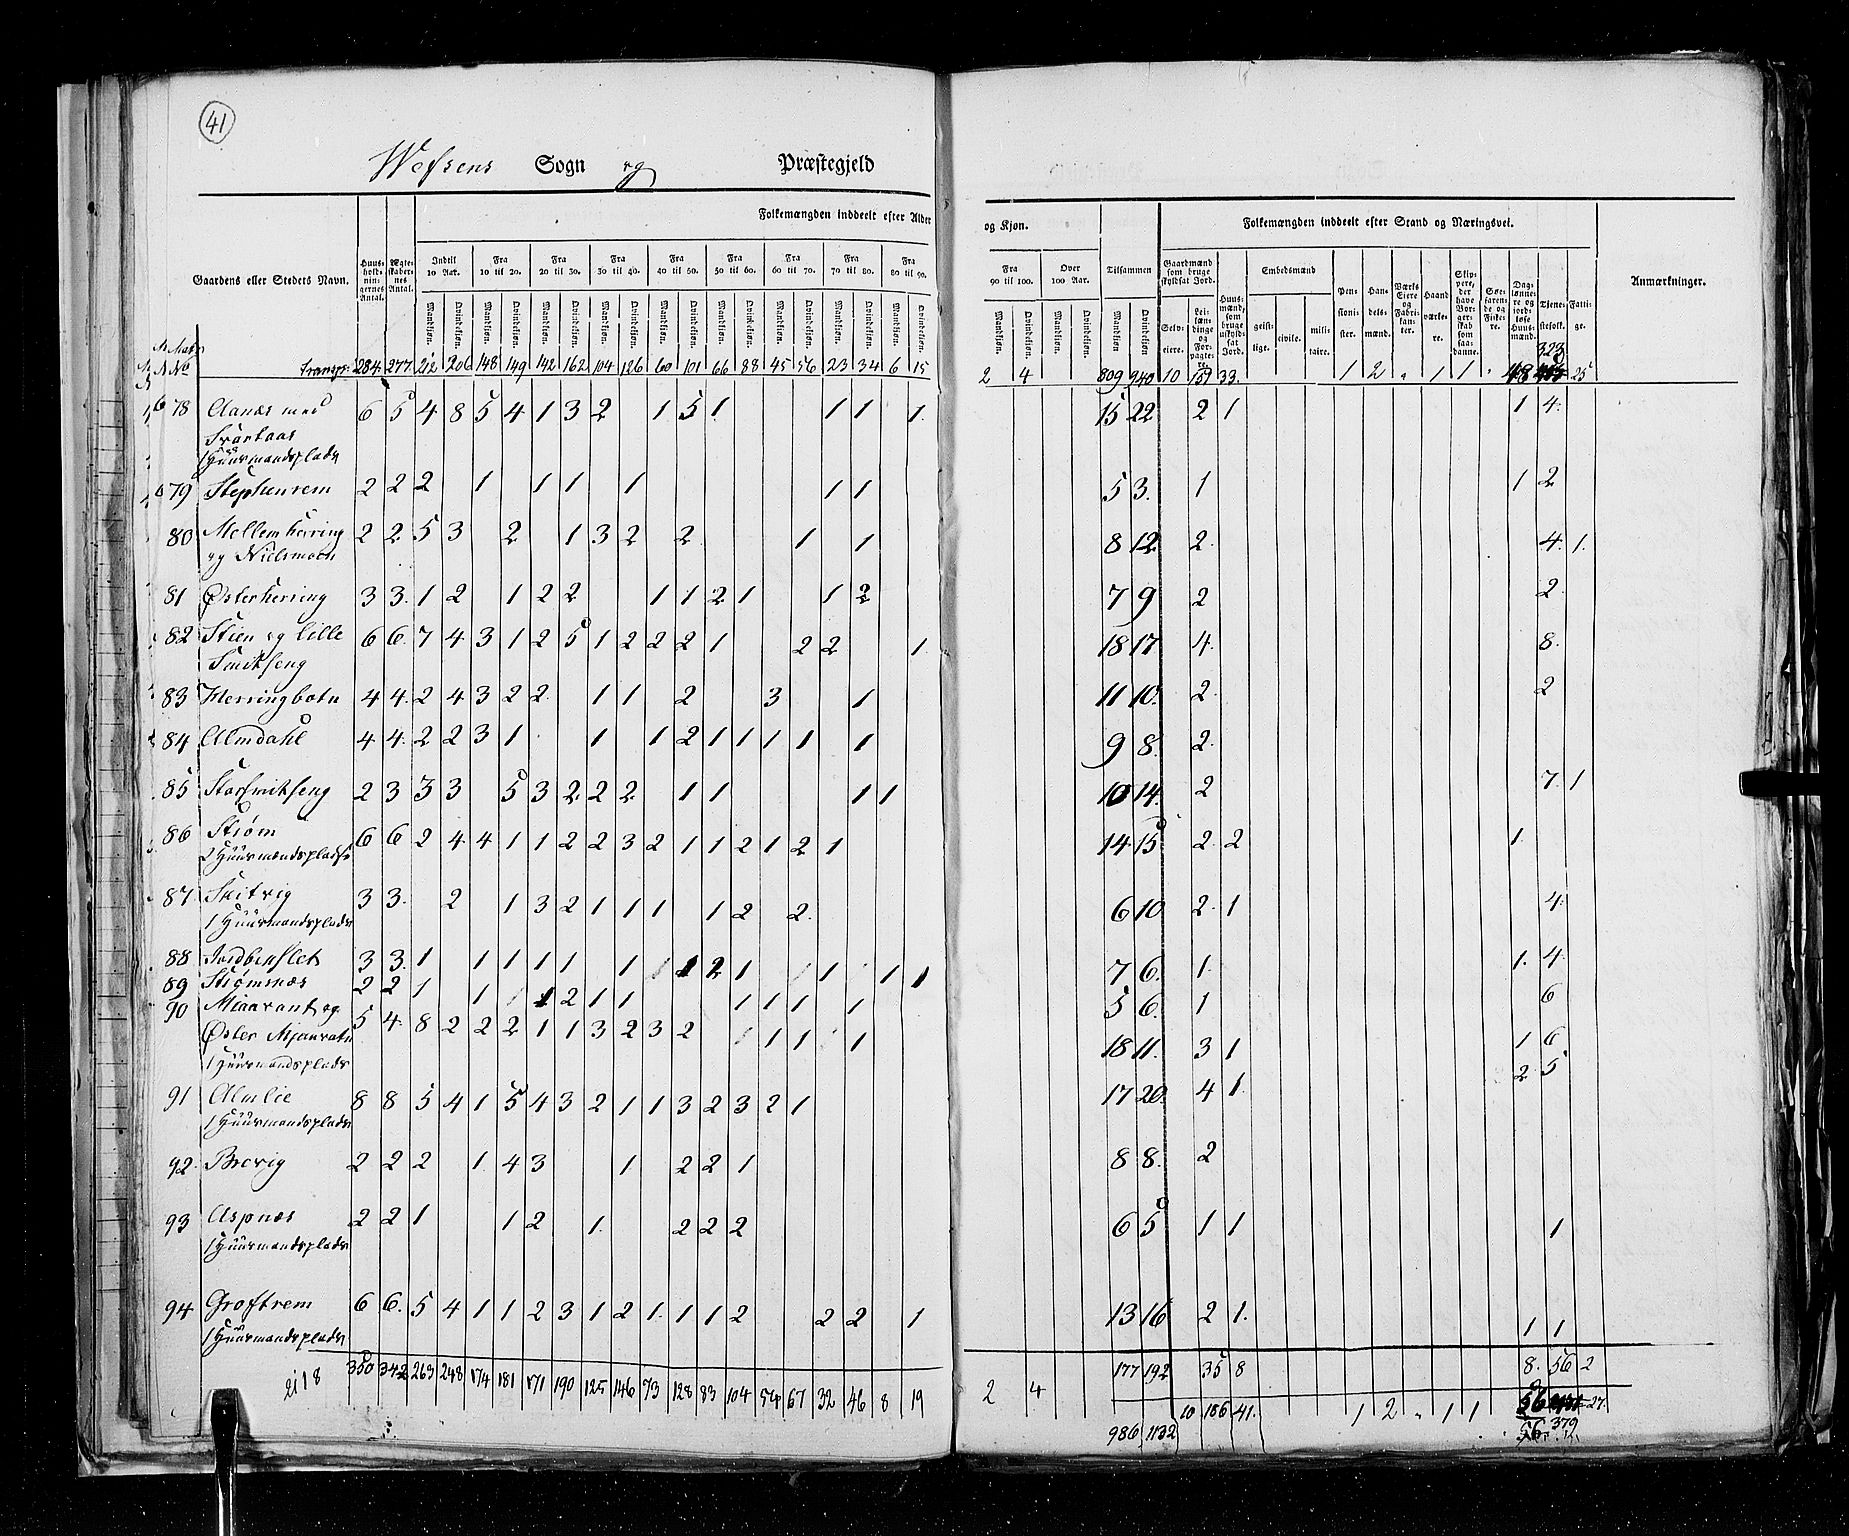 41
Wefsens Sogn og Præstegjeld
Folkemængden inddeelt efter Alder og Kjøn.
Folkemængden inddeelt efter Stand og Næringsvei.
Gaardens eller Stedets Navn.
Huusholdningernes Antal.
Ægteskabernes Antal.
Indtil 10 Aar.
Fra 10 til 20.
Fra 20 til 30.
Fra 30 til 40.
Fra 40 til 50.
Fra 50 til 60.
Fra 60 til 70.
Fra 70 til 80.
Fra 80 til 90.
Fra 90 til 100.
Over 100 Aar.
Tilsammen
Mandkjøn. Qvindekjøn.
Gaardmænd som bruge skyldsat Jord.
Selveiere.
Leilændinge og Forpagtere.
Huusmænd, som bruge uskyldsat Jord.
Embedsmænd
geistlige. civile. militaire.
Pensionister.
Handelsmænd.
Værks Eiere og Fabrikanter.
Haandværkere.
Skippere, der have Borgerskab som saadanne.
Søefarende og Fiskere.
Daglønnere og jordløse Huusmænd.
Tjenestefolk.
Fattige.
Anmærkninger.
Mat No
Transp: 284 277 212 206 148 149 142 162 104 126 60 101 66 88 45 56 23 34 6 15 2 4 809 940 10 151 33 1 2 " 1 1 " 48 323 25
78 Aanæs med Svartaas 1 Huusmandsplads 6 5 4 8 5 4 1 3 2 1 5 1 1 1 1 15 22 2 1 1 4
79 Stephenrem 2 2 2 1 1 1 1 1 1 5 3 1 1 2
80 Mellem Herring og Nielsmoen 2 2 5 3 2 1 3 2 2 1 1 8 12 2 4 1
81 Øster Herring 3 3 1 2 1 2 2 1 1 2 1 1 2 7 9 2 2
82 Stien og Lille Smitseng 6 6 7 4 3 1 2 5 1 2 2 2 1 2 2 1 18 17 4 8
83 Herringbotn 4 4 2 4 3 2 2 1 1 2 3 1 11 10 2 2
84 Almdahl 4 4 2 2 3 1 1 1 2 1 1 1 1 1 9 8 2
85 Storsmitseng 2 3 3 3 5 3 2 2 2 1 1 1 1 10 14 2 7 1
86 Strøm 2 Huusmandspladse 6 6 2 4 4 1 1 2 2 3 2 1 1 2 1 2 1 14 15 2 2 1
87 Suitvig 1 Huusmandsplads 3 3 2 1 3 2 1 1 1 1 2 2 6 10 2 1 4
88 3 3 1 1 1 1 1 1 1 2 1 1 1 1 7 6 1 1 4
89 Strømnæs 2 2 1 1 1 2 1 1 1 1 1 1 5 6 1 6
90 Miaavant og Øster Mjaavatn 1 Huusmandsplads 5 4 8 2 2 2 1 1 3 2 3 2 1 1 1 18 11 3 1 1 6
91 Almlie 1 Huusmandsplads 8 8 5 4 1 5 4 3 2 1 1 3 2 3 2 1 17 20 4 1 2 5
92 Brevig 2 2 2 1 4 3 1 2 2 1 8 8 2
93 Aspnæs 1 Huusmandsplads 2 2 1 1 2 1 2 2 2 6 5 1 1 1
94 Groftrem 1 Huusmandsplads 6 6 5 4 1 1 2 3 1 2 1 1 1 2 2 2 1 13 16 2 1 1 1
177 192 35 8 8 56 2
2118 350 342 263 248 174 181 171 190 125 146 73 128 83 104 54 67 32 46 8 19 2 4 10 186 41 1 2 " 1 1 56 27
986 1132 56 379